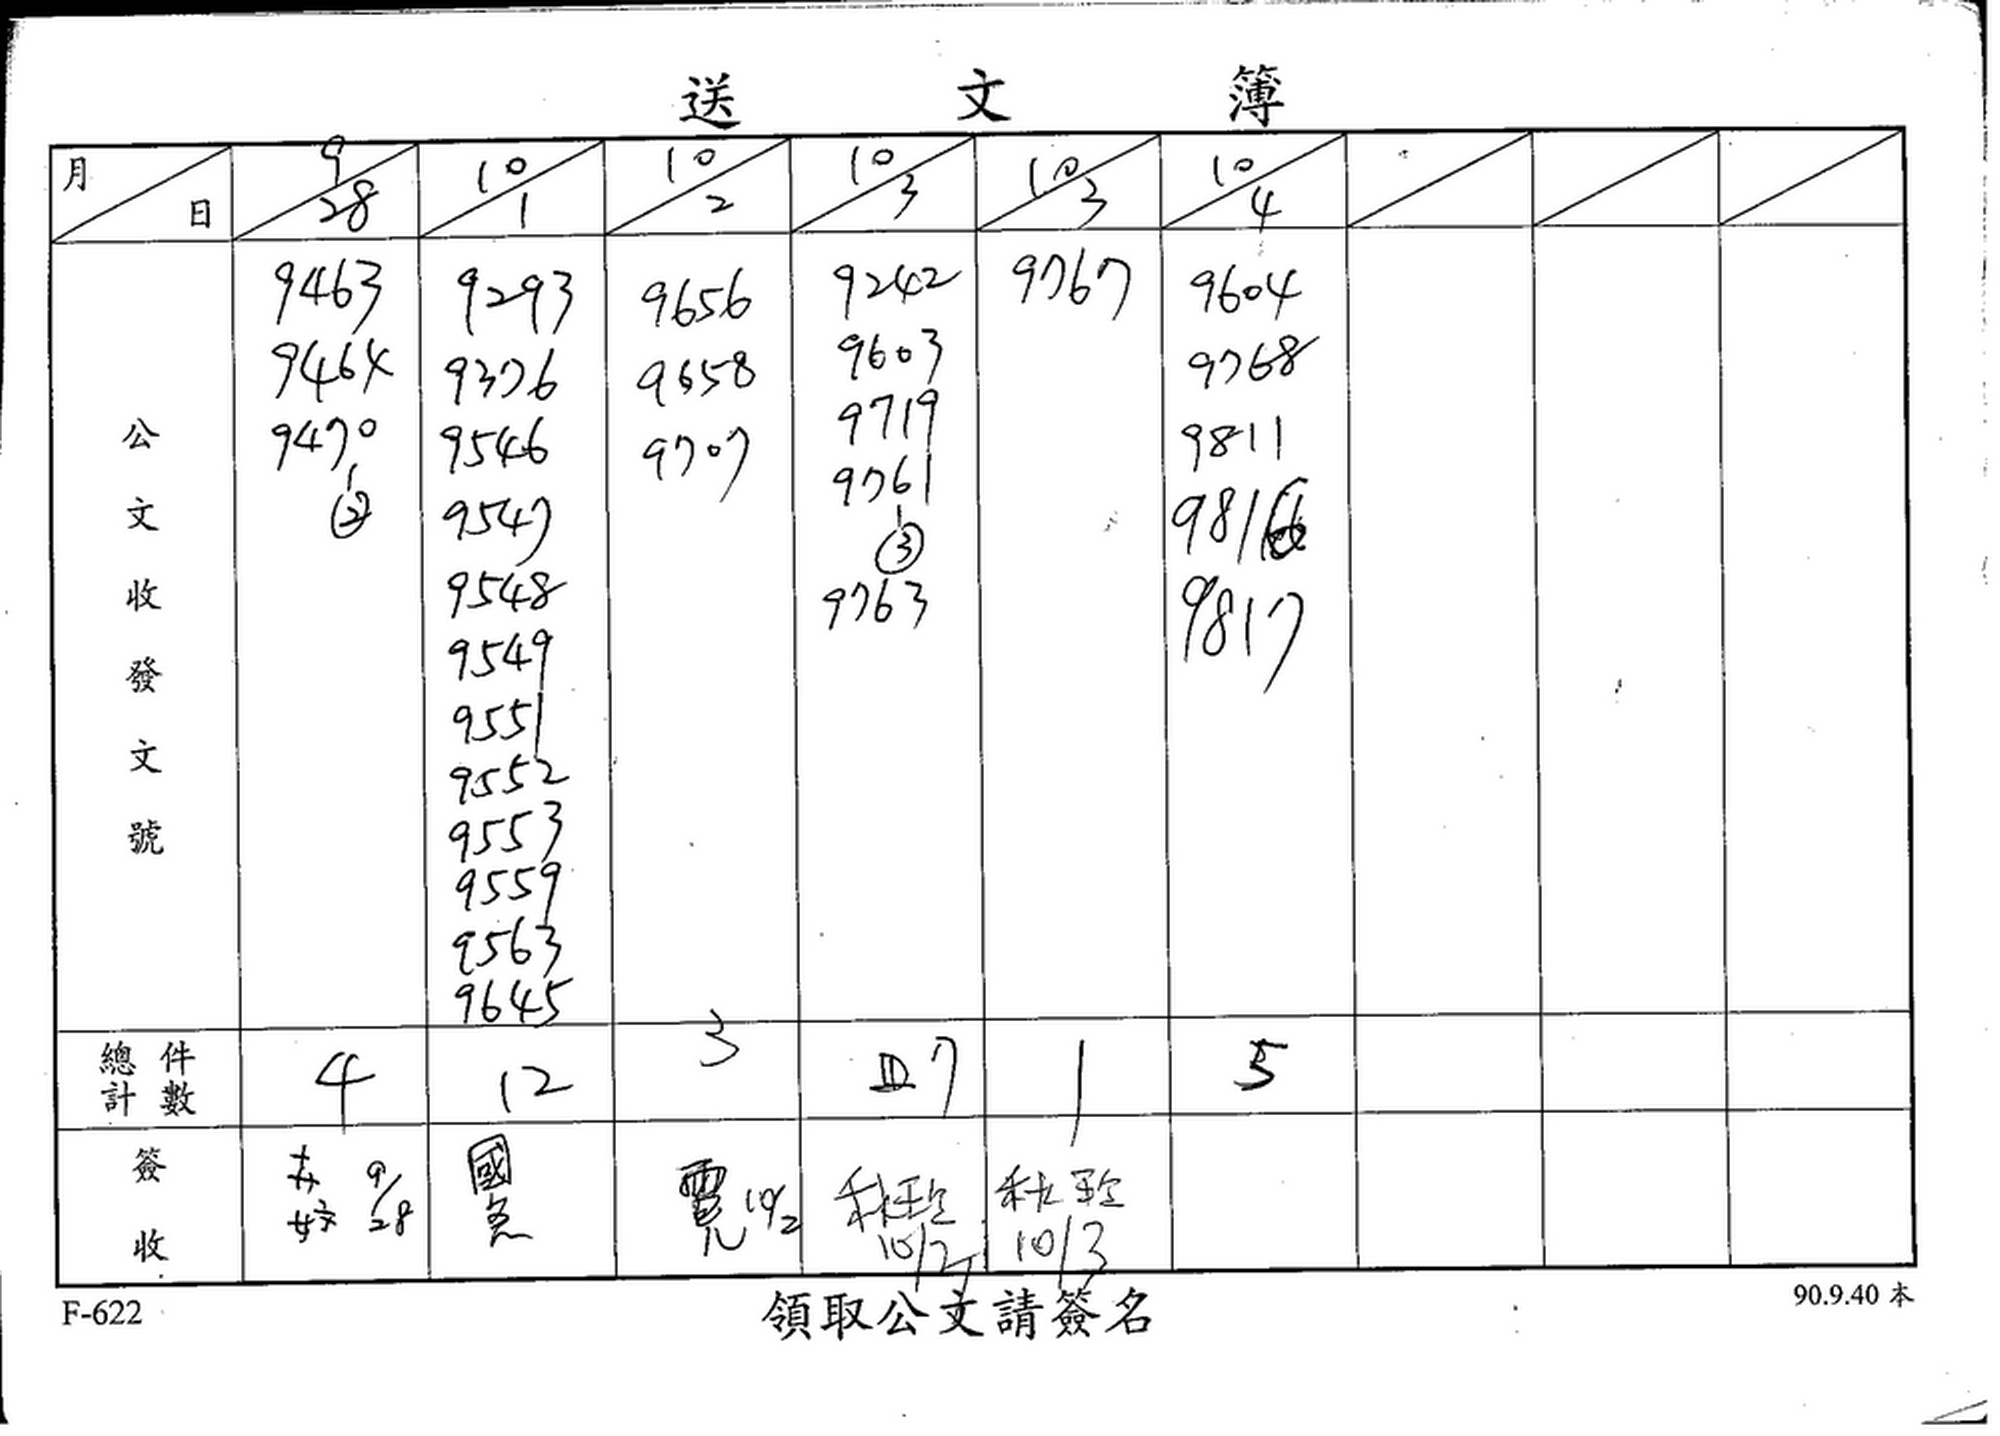 送文簿
月 日 9/28 10/1 10/2 10/3 10/3 10/4
公文收發文號
9463
9464
9470
②
9293
9376
9546
9547
9548
9549
9551
9552
9553
9559
9563
9645
9656
9658
9707
9242
9603
9719
9761
③
9763
9767
9604
9768
9811
9816
9817
總計件數 4 12 3 7 1 5
簽收 9/28 國 10/2 10/3
領取公文請簽名
F-622
90.9.40 本